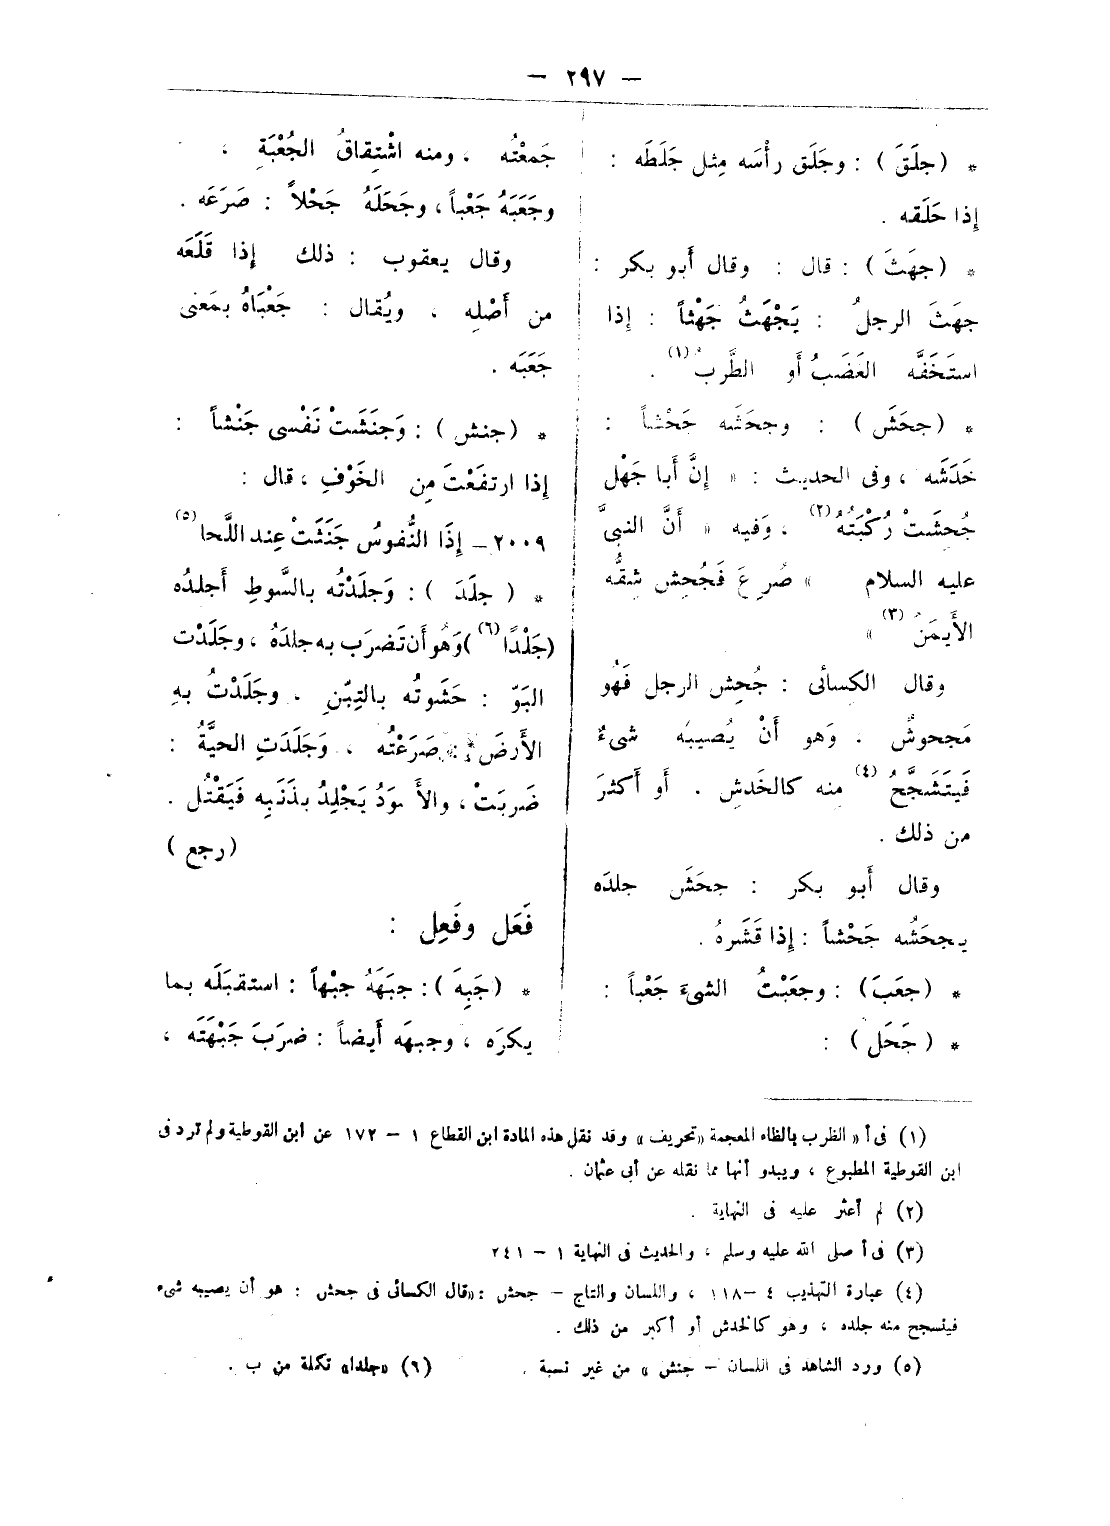 — ٢٩٧ —
* (جلَقَ) : وجَلَق رأْسَه مِثل جَلَطَه :
إذا حَلَقه .
* (جهَثَ) : قال : وقال أَبو بكر :
جهَثَ الرجلُ : يَجْهَثُ جَهْثاً : إذا
استَخَفَّه الغَضَبُ أَو الطَّربُ (١) .
* (جحَشَ) : وجحَشَه جَحْشاً :
خَدَشَه ، وفى الحديث : « إنَّ أَبا جَهْل
جُحشَتْ رُكْبَتُهُ (٢) ، وَفيه « أَنَّ النبىَّ
عليه السلام » صُرِعَ فَجُحِش شِقُّه
الأَيمَنُ (٣) »
وقال الكسائى : جُحِش الرجل فَهُو
مَجحوشٌ . وَهو أَنْ يُصيبَه شىءٌ
فَيتَشَجَّحُ (٤) منه كالخَدشِ . أَو أَكثرَ
من ذلك .
وقال أَبو بكر : جحَشَ جلدَه
يجحَشُه جَحْشاً : إذا قَشَرهُ .
* (جعَبَ) : وجعَبْتُ الشىءَ جَعْباً :
* (جَحَل) :
جَمعْتُه ، ومنه اشْتِقاقُ الجُعْبَةِ ،
وجَعَبَهُ جَعْباً ، وجَحَلَهُ جَحْلاً : صَرَعَه .
وقال يعقوب : ذلك إذا قَلَعَه
من أَصْلِه ، ويُقال : جَعْبَاهُ بمَعنى
جَعَبَه .
* (جنش) : وَجنَشَتْ نَفْسى جَنْشاً :
إذا ارتفَعْتَ مِن الخَوْفِ ، قال :
٢٠٠٩ – إذَا النُّفوسُ جَنَشَتْ عِند اللَّحا (٥)
* (جلَدَ) : وَجلَدْتُه بالسَّوطِ أَجلدُه
(جَلْدًا (٦)) وَهُو أَن تَضرَب به جلدَهُ ، وجلَدْت
البَوّ : حَشَوتُه بالتِبْنِ . وجلَدْتُ بهِ
الأَرضَ : صَرَعْتُه ، وَجَلَدَتِ الحيَّةُ :
ضَربَتْ ، والأَسوَدُ يَجْلِدُ بذَنَبِه فَيَقْتُل .
(رجع)
فَعَل وفَعِل :
* (جَبِهَ) : جبَهَهُ جبْهاً : استقبَلَه بما
يكرَه ، وجبهَه أَيضاً : ضرَبَ جَبْهَتَه ،
(١) فى أ « الظرب بالظاء المعجمة «تحريف» وقد نقل هذه المادة ابن القطاع ١ – ١٧٢ عن ابن القوطية ولم ترد فى
ابن القوطية المطبوع ، ويبدو أنها مما نقله عن أبى عثمان .
(٢) لم أعثر عليه فى النهاية .
(٣) فى أ صلى الله عليه وسلم ، والحديث فى النهاية ١ – ٢٤١
(٤) عبارة التهذيب ٤ – ١١٨ ، واللسان والتاج – جحش : «قال الكسائى فى جحش : هو أن يصيبه شىء
فيتسجح منه جلده ، وهو كالخدش أو أكبر من ذلك .
(٥) ورد الشاهد فى اللسان – جنش » من غير نسبة . (٦) «جلدا» تكملة من ب .